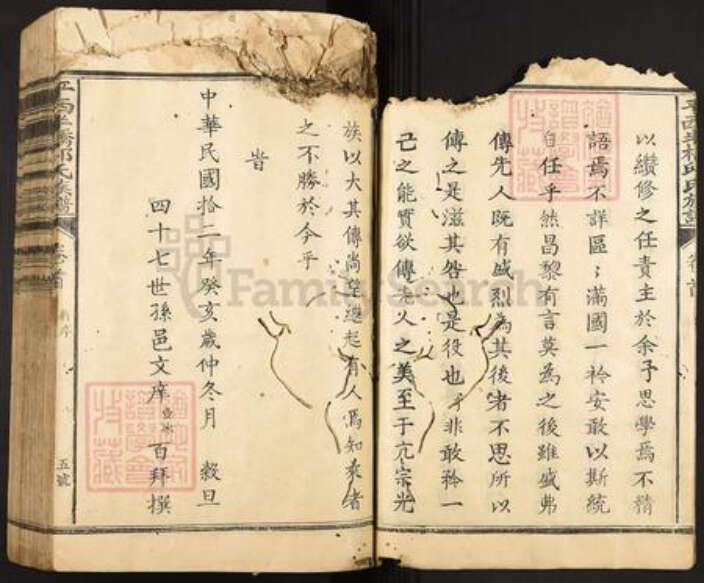 以纘修之任責主於余予思學焉不精
語焉不詳區區滿國一衿安敢以斯統
自任乎然昌黎有言莫為之後雖盛弗
傳先人既有盛烈為其後者不思所以
傳之是滋其咎也是役也予非敢矜一
己之能實欲傳先人之美至于亢宗光
族以大其傳尚望繼起有人焉知來者
之不勝於今乎
旹
中華民國拾二年癸亥歲仲冬月 穀旦
四十七世孫邑文庠 百拜撰
氏族譜
卷首
五號
FamilySearch